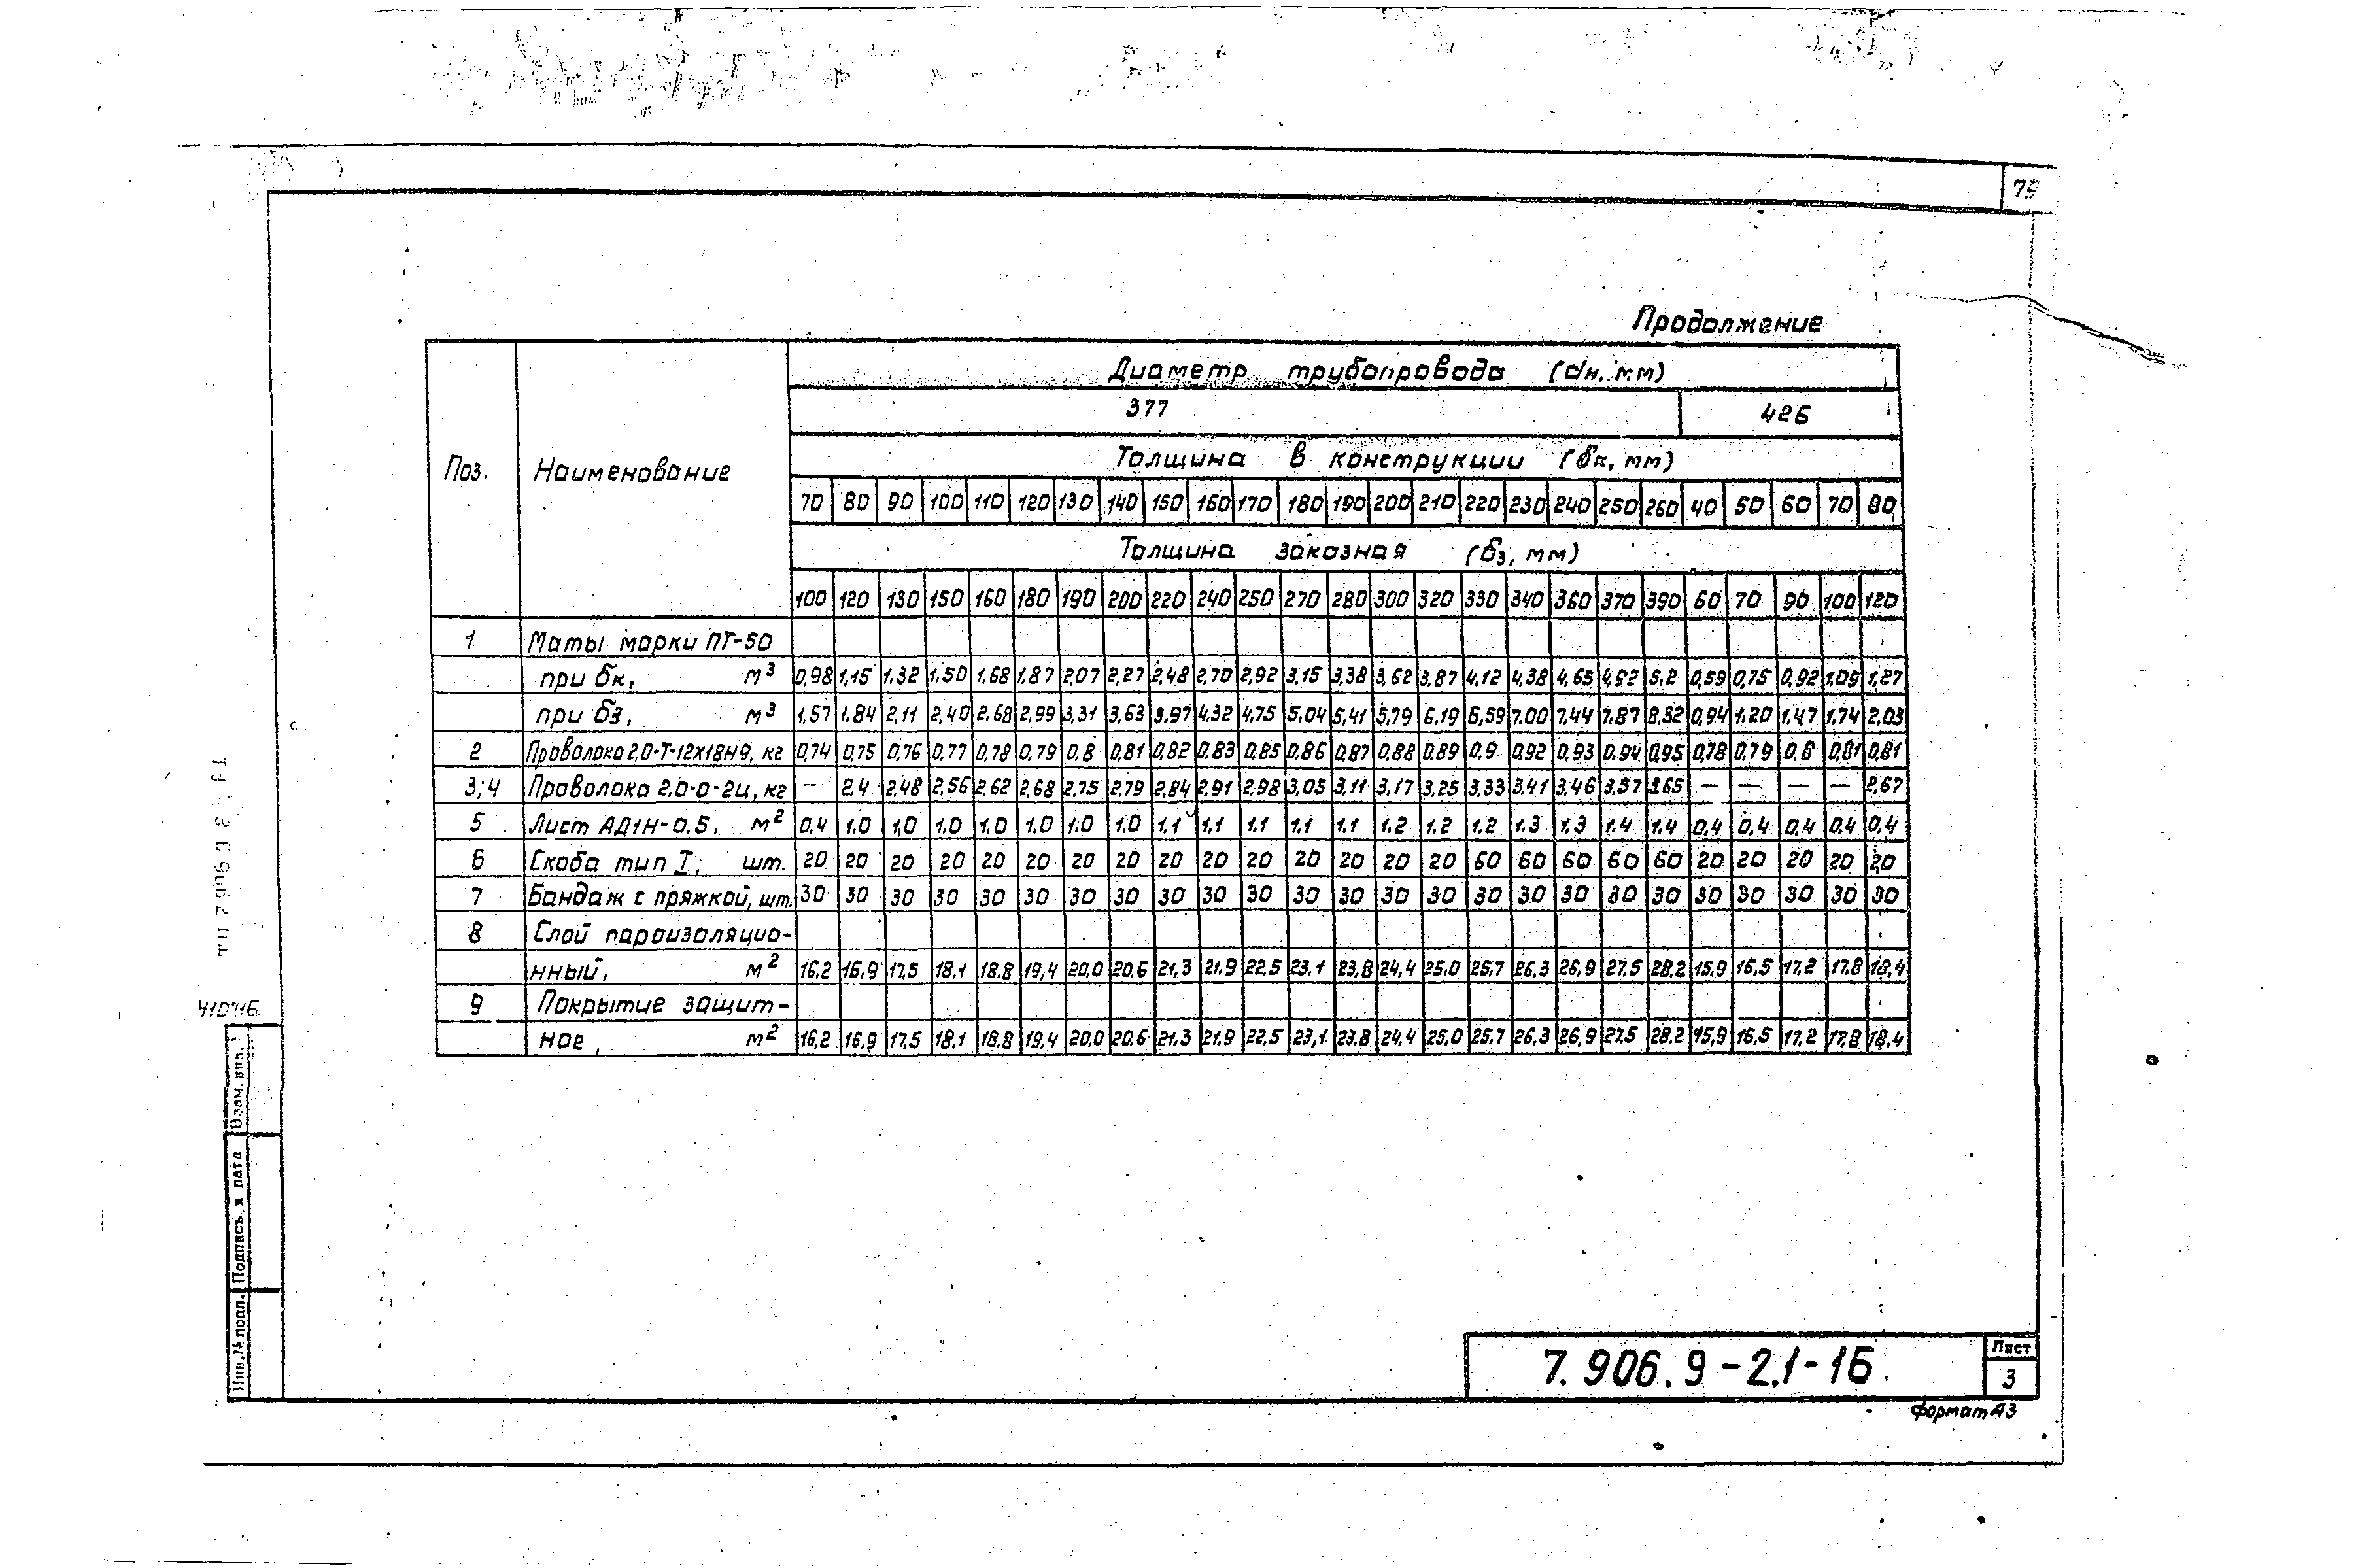 Продолжение
Поз. Наименование Диаметр трубопровода (dн, мм)
377 426
Толщина в конструкции (бк, мм)
70 80 90 100 110 120 130 140 150 160 170 180 190 200 210 220 230 240 250 260 40 50 60 70 80
Толщина заказная (бз, мм)
100 120 130 150 160 180 190 200 220 240 250 270 280 300 320 330 340 360 370 390 60 70 90 100 120
1 Маты марки ПТ-50
при бк, м³ 0,98 1,15 1,32 1,50 1,68 1,87 2,07 2,27 2,48 2,70 2,92 3,15 3,38 3,62 3,87 4,12 4,38 4,65 4,92 5,2 0,59 0,75 0,92 1,09 1,27
при бз, м³ 1,57 1,84 2,11 2,40 2,68 2,99 3,31 3,63 3,97 4,32 4,75 5,04 5,41 5,79 6,19 6,59 7,00 7,44 7,87 8,32 0,94 1,20 1,47 1,74 2,03
2 Проволока 2,0-Т-12Х18Н9, кг 0,74 0,75 0,76 0,77 0,78 0,79 0,8 0,81 0,82 0,83 0,85 0,86 0,87 0,88 0,89 0,9 0,92 0,93 0,94 0,95 0,78 0,79 0,8 0,81 0,81
3;4 Проволока 2.0-0-2ц, кг — 2,4 2,48 2,56 2,62 2,68 2,75 2,79 2,84 2,91 2,98 3,05 3,11 3,17 3,25 3,33 3,41 3,46 3,57 3,65 — — — — 2,67
5 Лист АД1Н-0,5, м² 0,4 1,0 1,0 1,0 1,0 1,0 1,0 1,0 1,1 1,1 1,1 1,1 1,1 1,2 1,2 1,2 1,3 1,3 1,4 1,4 0,4 0,4 0,4 0,4 0,4
6 Скоба тип I, шт. 20 20 20 20 20 20 20 20 20 20 20 20 20 20 20 60 60 60 60 60 20 20 20 20 20
7 Бандаж с пряжкой, шт. 30 30 30 30 30 30 30 30 30 30 30 30 30 30 30 30 30 30 30 30 30 30 30 30 30
8 Слой пароизоляцио-
нный, м² 16,2 16,9 17,5 18,1 18,8 19,4 20,0 20,6 21,3 21,9 22,5 23,1 23,8 24,4 25,0 25,7 26,3 26,9 27,5 28,2 15,9 16,5 17,2 17,8 18,4
9 Покрытие защит-
ное, м² 16,2 16,9 17,5 18,1 18,8 19,4 20,0 20,6 21,3 21,9 22,5 23,1 23,8 24,4 25,0 25,7 26,3 26,9 27,5 28,2 15,9 16,5 17,2 17,8 18,4
Взам. инв.
Подпись и дата
Инв.№ подл.
7.906.9-2.1-16.
Лист
3
Формат А3